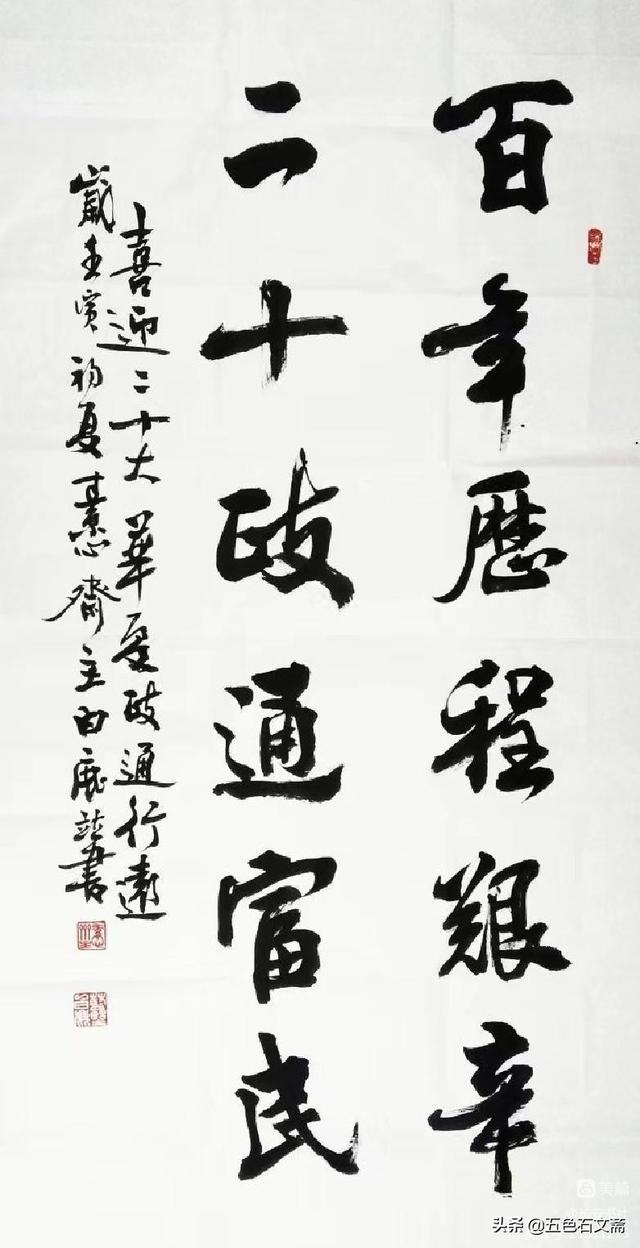 百年歷程艱辛
二十政通富民
喜迎二十大華夏政通行遠
歲壬寅初夏素心齋主白鹿塬書
美篇
头条@五色石文斋